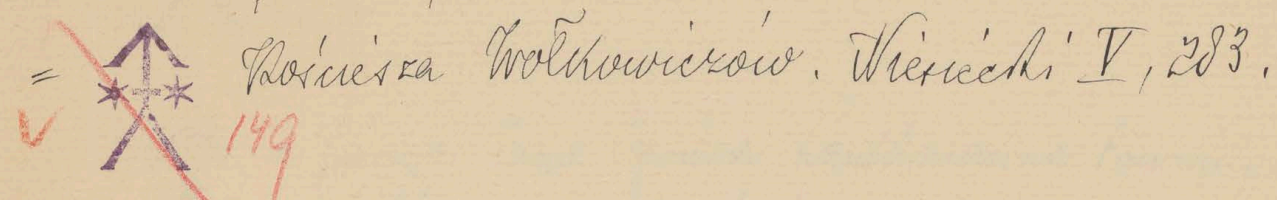 = Kościesza Wołkowiczów. Niesiecki V, 283.
v 149